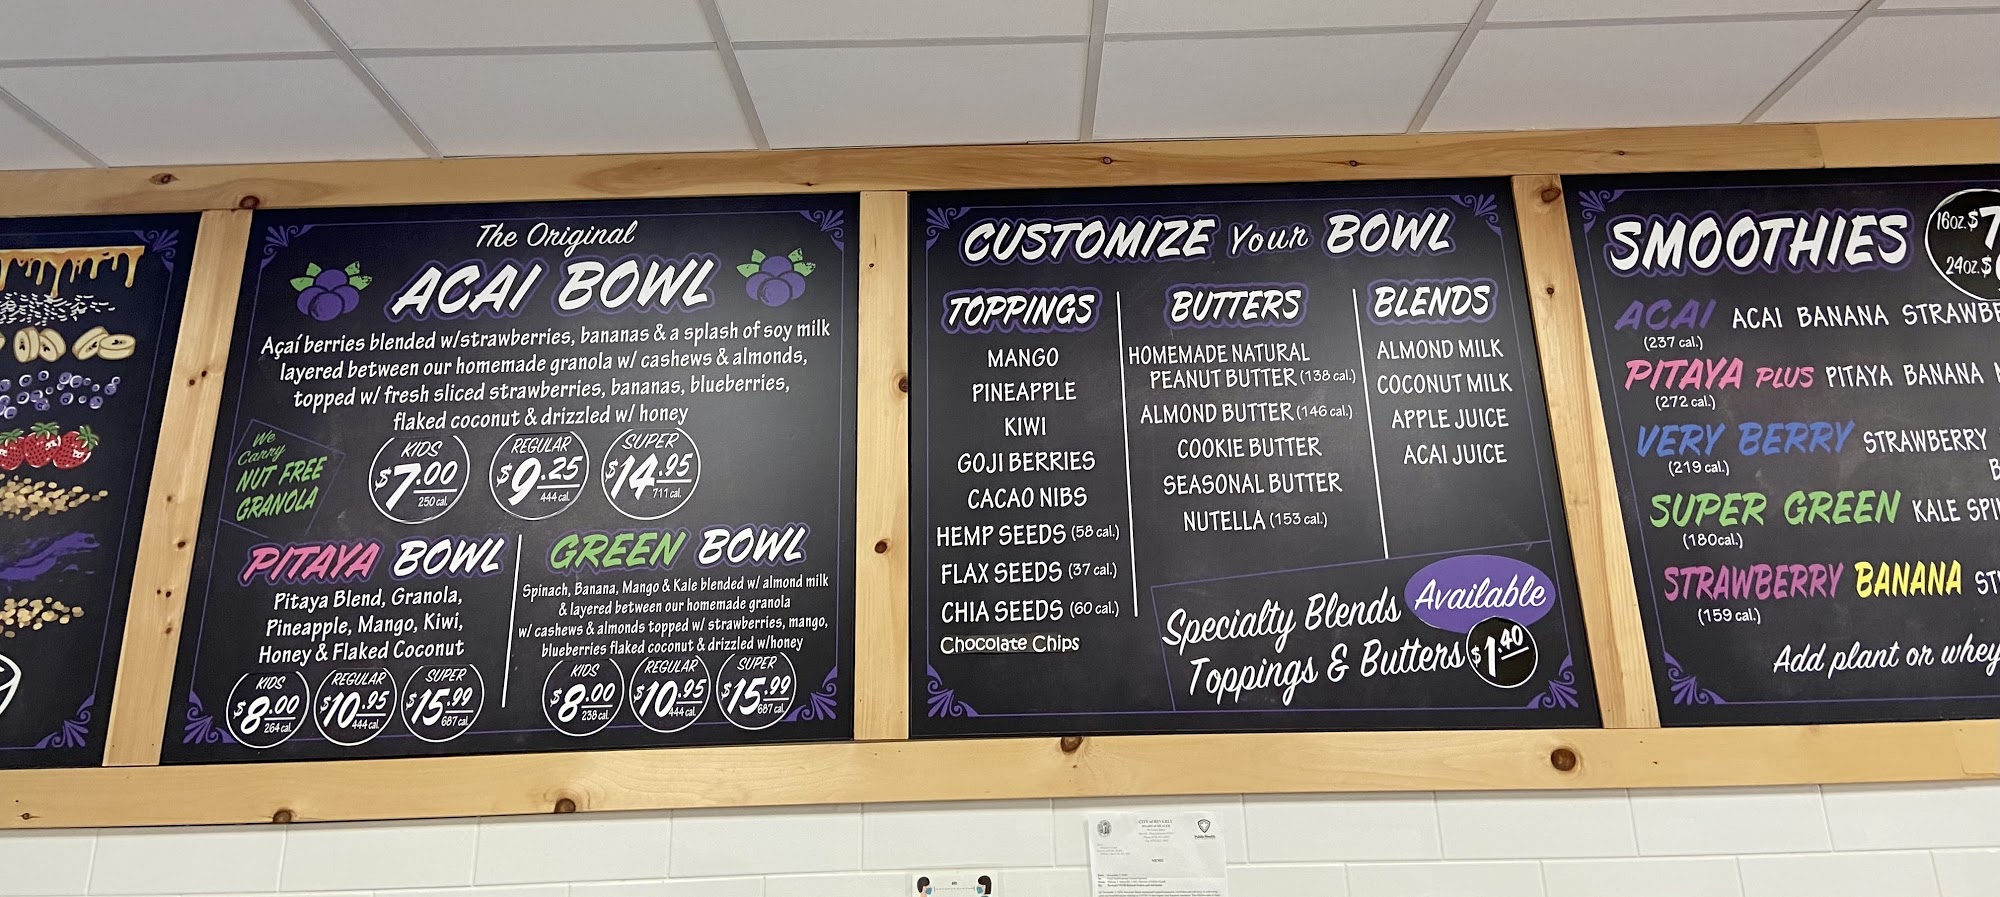 The Original
ACAI BOWL
Açaí berries blended w/strawberries, bananas & a splash of soy milk
layered between our homemade granola w/ cashews & almonds,
topped w/ fresh sliced strawberries, bananas, blueberries,
flaked coconut & drizzled w/ honey
We
Carry
NUT FREE
GRANOLA
KIDS
$7.00
250 cal.
REGULAR
$9.25
444 cal.
SUPER
$14.95
711 cal.
PITAYA BOWL
Pitaya Blend, Granola,
Pineapple, Mango, Kiwi,
Honey & Flaked Coconut
KIDS
$8.00
264 cal.
REGULAR
$10.95
444 cal.
SUPER
$15.99
687 cal.
GREEN BOWL
Spinach, Banana, Mango & Kale blended w/ almond milk
& layered between our homemade granola
w/ cashews & almonds topped w/ strawberries, mango,
blueberries flaked coconut & drizzled w/honey
KIDS
$8.00
238 cal.
REGULAR
$10.95
444 cal.
SUPER
$15.99
687 cal.
CUSTOMIZE Your BOWL
TOPPINGS
MANGO
PINEAPPLE
KIWI
GOJI BERRIES
CACAO NIBS
HEMP SEEDS (58 cal.)
FLAX SEEDS (37 cal.)
CHIA SEEDS (60 cal.)
Chocolate Chips
BUTTERS
HOMEMADE NATURAL
PEANUT BUTTER (138 cal.)
ALMOND BUTTER (146 cal.)
COOKIE BUTTER
SEASONAL BUTTER
NUTELLA (153 cal.)
BLENDS
ALMOND MILK
COCONUT MILK
APPLE JUICE
ACAI JUICE
Specialty Blends Available
Toppings & Butters $1.40
SMOOTHIES
16oz. $7
24oz. $
ACAI ACAI BANANA STRAWBE
(237 cal.)
PITAYA PLUS PITAYA BANANA
(272 cal.)
VERY BERRY STRAWBERRY
(219 cal.)
B
SUPER GREEN KALE SPI
(180cal.)
STRAWBERRY BANANA ST
(159 cal.)
Add plant or whey
CITY of BEVERLY